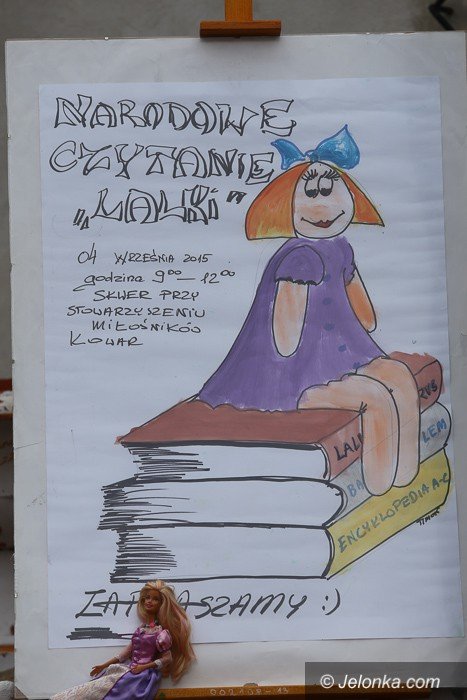 NARODOWE
CZYTANIE
„LALKI"
04 WRZEŚNIA 2015
godzina 9⁰⁰ — 12⁰⁰
SKWER PRZY
STOWARZYSZENIU
MIŁOŚNIKÓW
KOWAR
LAL RUS
BA LEM
ENCYKLOPEDIA A-C
ZAP ASZAMY :)
© Jelonka.com